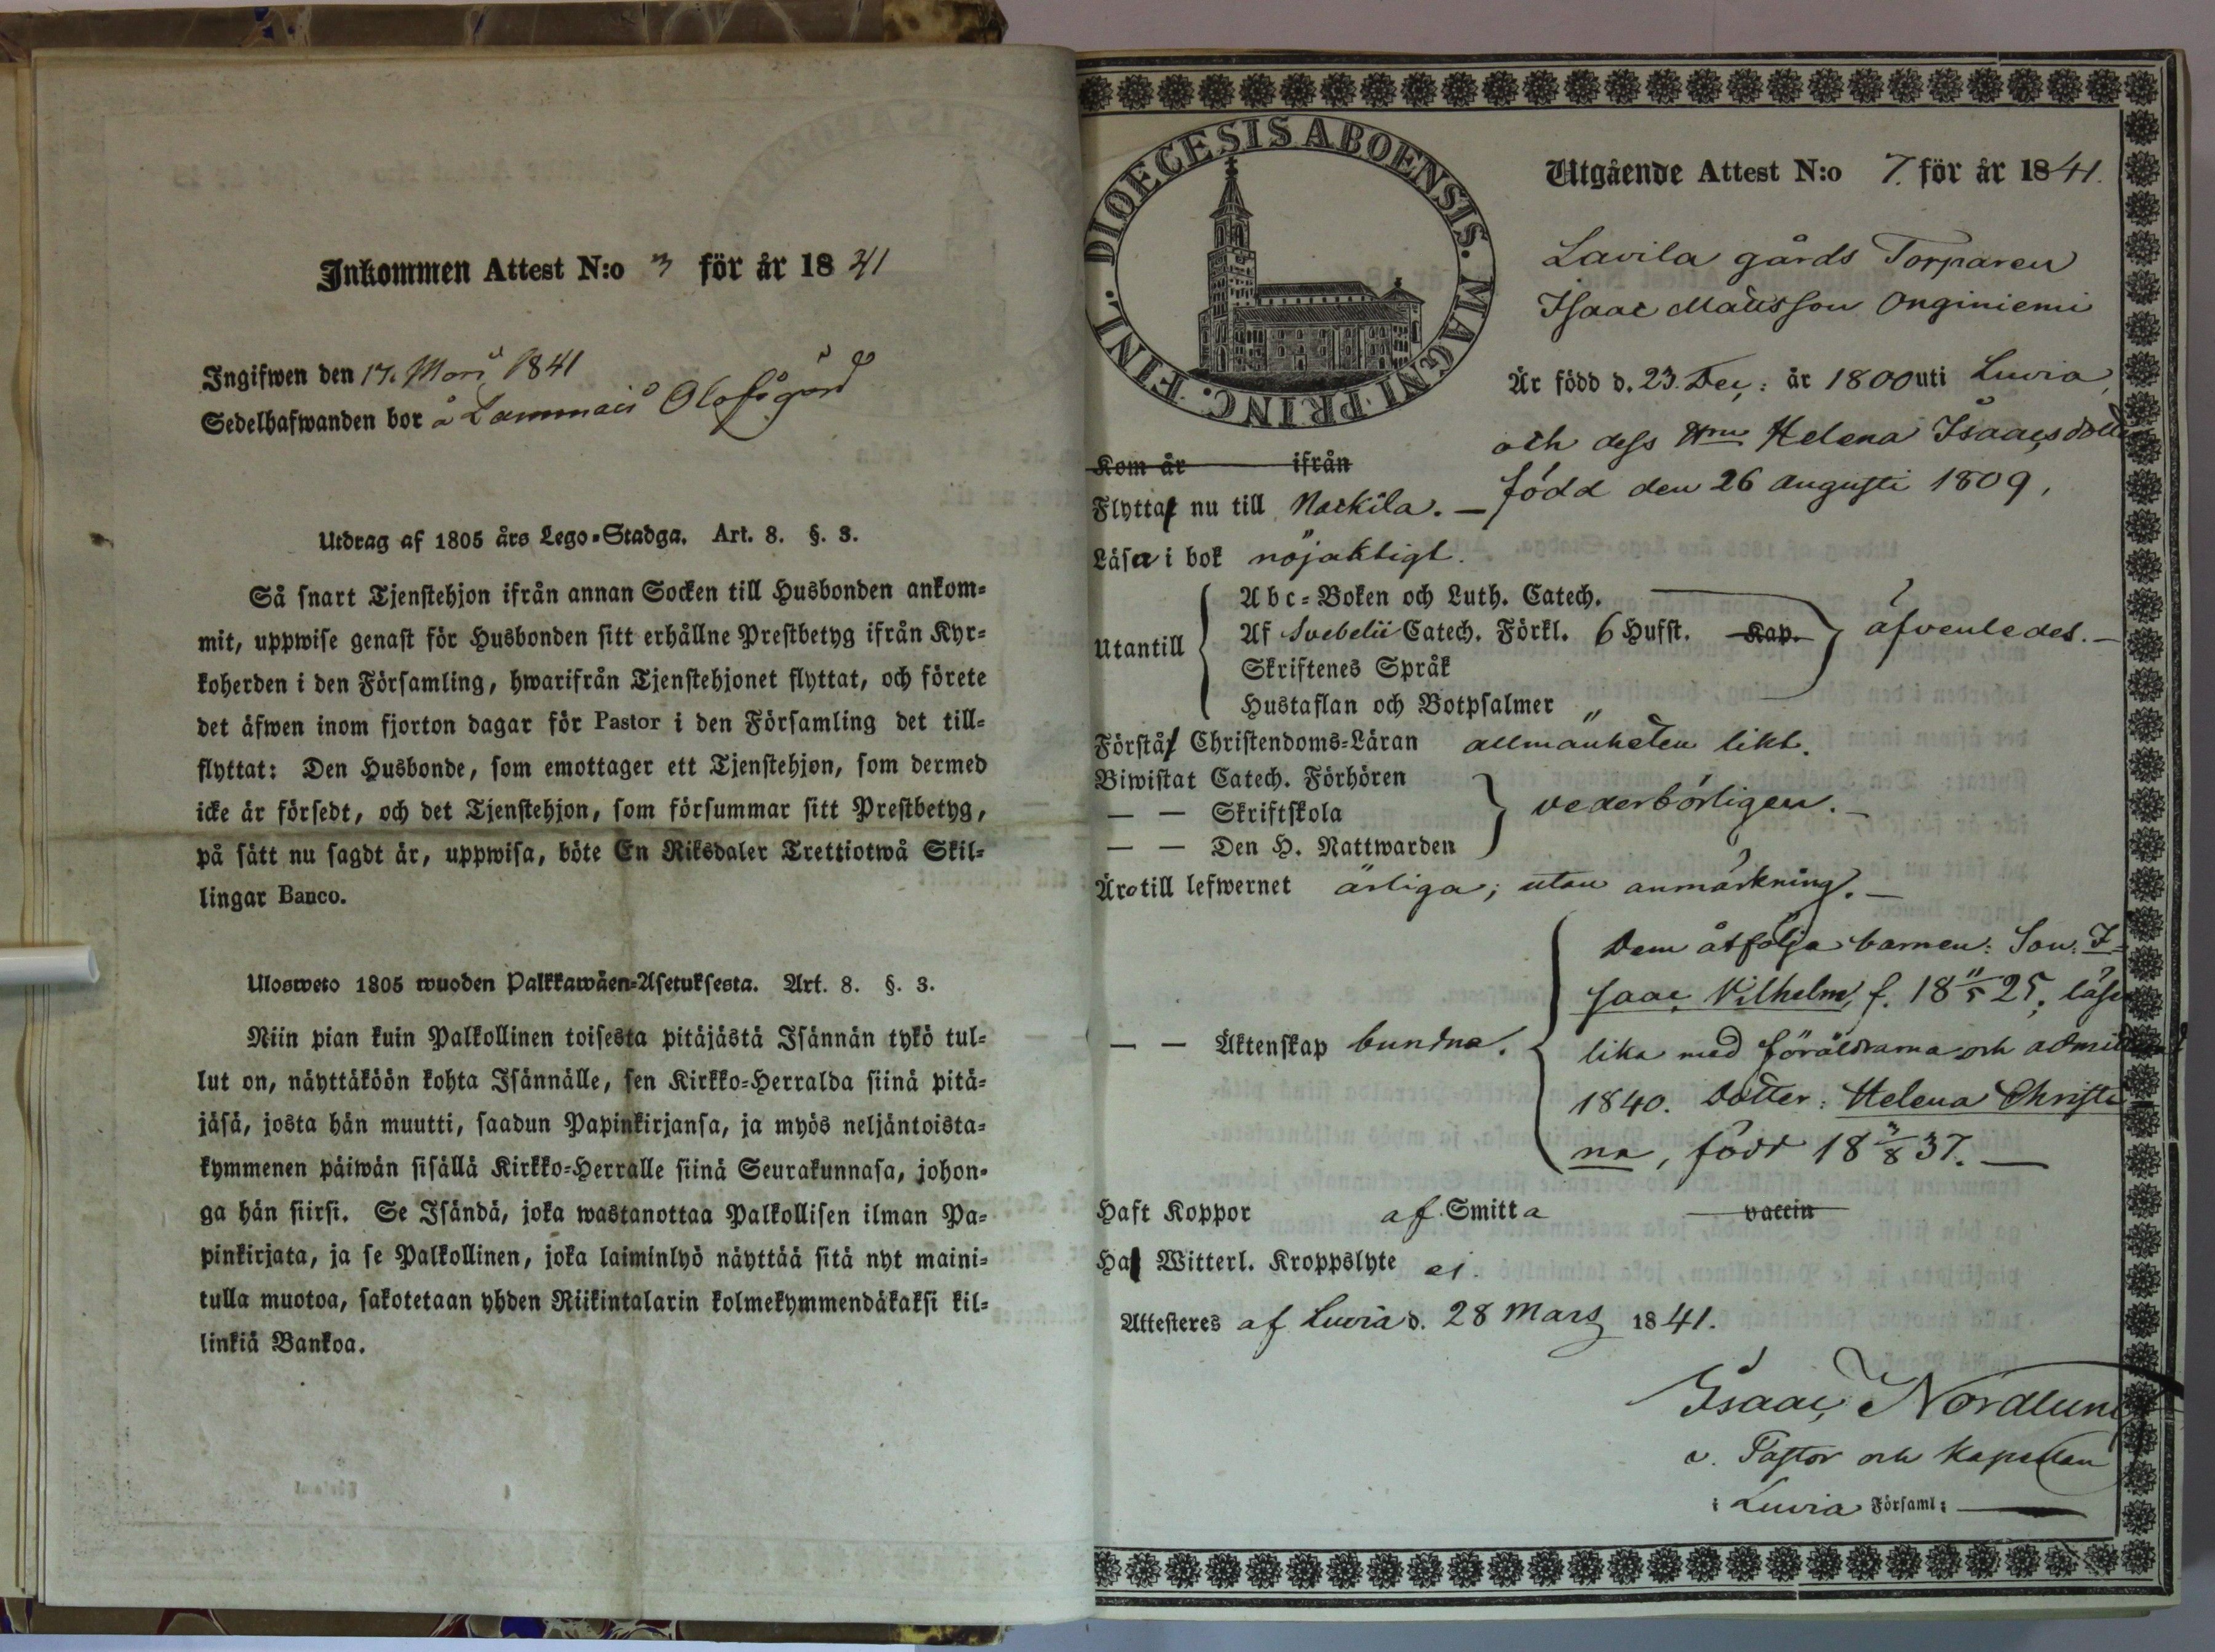 Inkommen Attest N:o 3 för år 1841
Ingifwen den 17. Mars 1841
Sedelhafwanden bor å Lammais Olofsgård
Utdrag af 1805 års Lego-Stadga. Art. 8. §. 3.
Så snart Tjenstehjon ifrån annan Socken till Husbonden ankom-
mit, uppwise genast för Husbonden sitt erhållne Prestbetyg ifrån Kyr-
koherden i den Församling, hwarifrån Tjenstehjonet flyttat, och förete
det äfwen inom fjorton dagar för Pastor i den Församling det till-
flyttat: Den Husbonde, som emottager ett Tjenstehjon, som dermed
icke är försedt, och det Tjenstehjon, som försummar sitt Prestbetyg,
på sätt nu sagdt är, uppwisa, böte En Riksdaler Trettiotwå Skil-
lingar Banco.
Ulosweto 1805 wuoden Palkkawäen-Asetuksesta. Art. 8. §. 3.
Niin pian kuin Palkollinen toisesta pitäjästä Isännän tykö tul-
lut on, näyttäköön kohta Isännälle, sen Kirkko-Herralda siinä pitä-
jäsä, josta hän muutti, saadun Papinkirjansa, ja myös neljäntoista-
kymmenen päiwän sisällä Kirkko-Herralle siinä Seurakunnasa, johon-
ga hän siirsi. Se Isändä, joka wastanottaa Palkollisen ilman Pa-
pinkirjata, ja se Palkollinen, joka laiminlyö näyttää sitä nyt maini-
tulla muotoa, sakotetaan yhden Riikintalarin kolmekymmendäkaksi kil-
linkiä Bankoa.
DIOECESIS ABOENSIS. MAGNI PRINC. FINL.
Utgående Attest N:o 7. för år 1841.
Lavila gårds Torparen
Isaac Matsson Onginiemi
Är född d. 23. Dec: år 1800 uti Luvia,
och dess Hru Helena Isaacsdotter
född den 26 Augusti 1809,
Kom år ifrån
Flytta nu till Nackila. —
Läsa i bok nöjaktigt.
Utantill
Abc-Boken och Luth. Catech.
Af Svebelii Catech. Förkl. 6 Hufst. Kap.
Skriftenes Språk
Hustaflan och Botpsalmer „
äfvenledes. —
Förstå Christendoms-Läran allmänheten likt.
Biwistat Catech. Förhören
— — Skriftskola
— — Den H. Nattwarden
vederbörligen. —
Äro till lefwernet ärliga; utan anmärkning. —
— — Äktenskap bundna.
Dem åtfölja barnen: Son: I-
saac Vilhelm, f. 18 11/5 25, läser
lika med föräldrarna och admitterad
1840. Dotter: Helena Christi-
na, född 18 3/8 37. —
Haft Koppor af Smitta vaccin
Ha Witterl. Kroppslyte ej.
Attesteres af Luvia d. 28 Mars 1841.
Isaac Nordlund
v. Pastor och Kapellan
i Luvia Församl: —